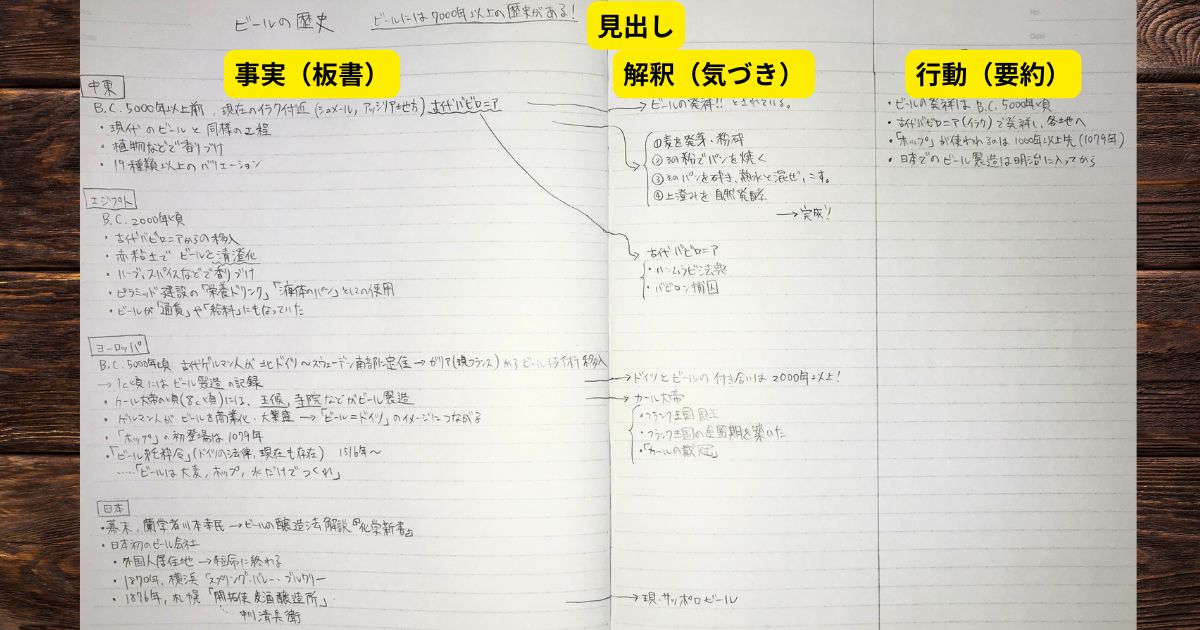 ビールの歴史　ビールには7000年以上の歴史がある!
見出し
事実（板書）
解釈（気づき）
行動（要約）
中東
B.C.5000年以上前，現在のイラク付近（シュメール，アッシリア地方）古代バビロニア
・現代のビールと同様の工程
・植物などで香りづけ
・19種類以上のバリエーション
エジプト
B.C.2000年頃
・古代バビロニアからの移入
・赤粘土でビールを清澄化
・ハーブ，スパイスなどで香りづけ
・ピラミッド建設の「栄養ドリンク」「液体のパン」としての使用
・ビールが「通貨」や「給料」にもなっていた
ヨーロッパ
B.C.5000年頃 古代ゲルマン人が北ドイツ〜スウェーデン南部に定住→ガリア（現フランス）からビール技術移入
→1c頃にはビール製造の記録
・カール大帝の頃（8c頃）には，王侯，寺院などがビール製造
・ゲルマン人がビールを商業化・大繁盛→「ビール=ドイツ」のイメージにつながる
・「ホップ」の初登場は1079年
・「ビール純粋令」（ドイツの法律，現在も存在） 1516年〜
……「ビールは大麦，ホップ，水だけでつくれ」
日本
・幕末，蘭学者川本幸民→ビールの醸造法解説『化学新書』
・日本初のビール会社
・外国人居住地→短命に終わる
・1870年，横浜「スプリング・バレー・ブルワリー
・1876年，札幌「開拓使麦酒醸造所」
中川清兵衛
→ビールの発祥!!とされている。
①麦を発芽・粉砕
②その粉でパンを焼く
③そのパンを砕き，熱水と混ぜ，こす。
④上澄みを自然発酵
→完成!
古代バビロニア
・ハンムラビ法典
・バビロン捕囚
→ドイツとビールの付き合いは2000年以上!
→カール大帝
・フランク王国国王
・フランク王国の全盛期を築いた
・「カールの戴冠」
→現・サッポロビール
・ビールの発祥はB.C.5000年頃
・古代バビロニア（イラク）で発祥し，各地へ
・「ホップ」が使われるのは1000年以上先（1079年）
・日本でのビール製造は明治に入ってから